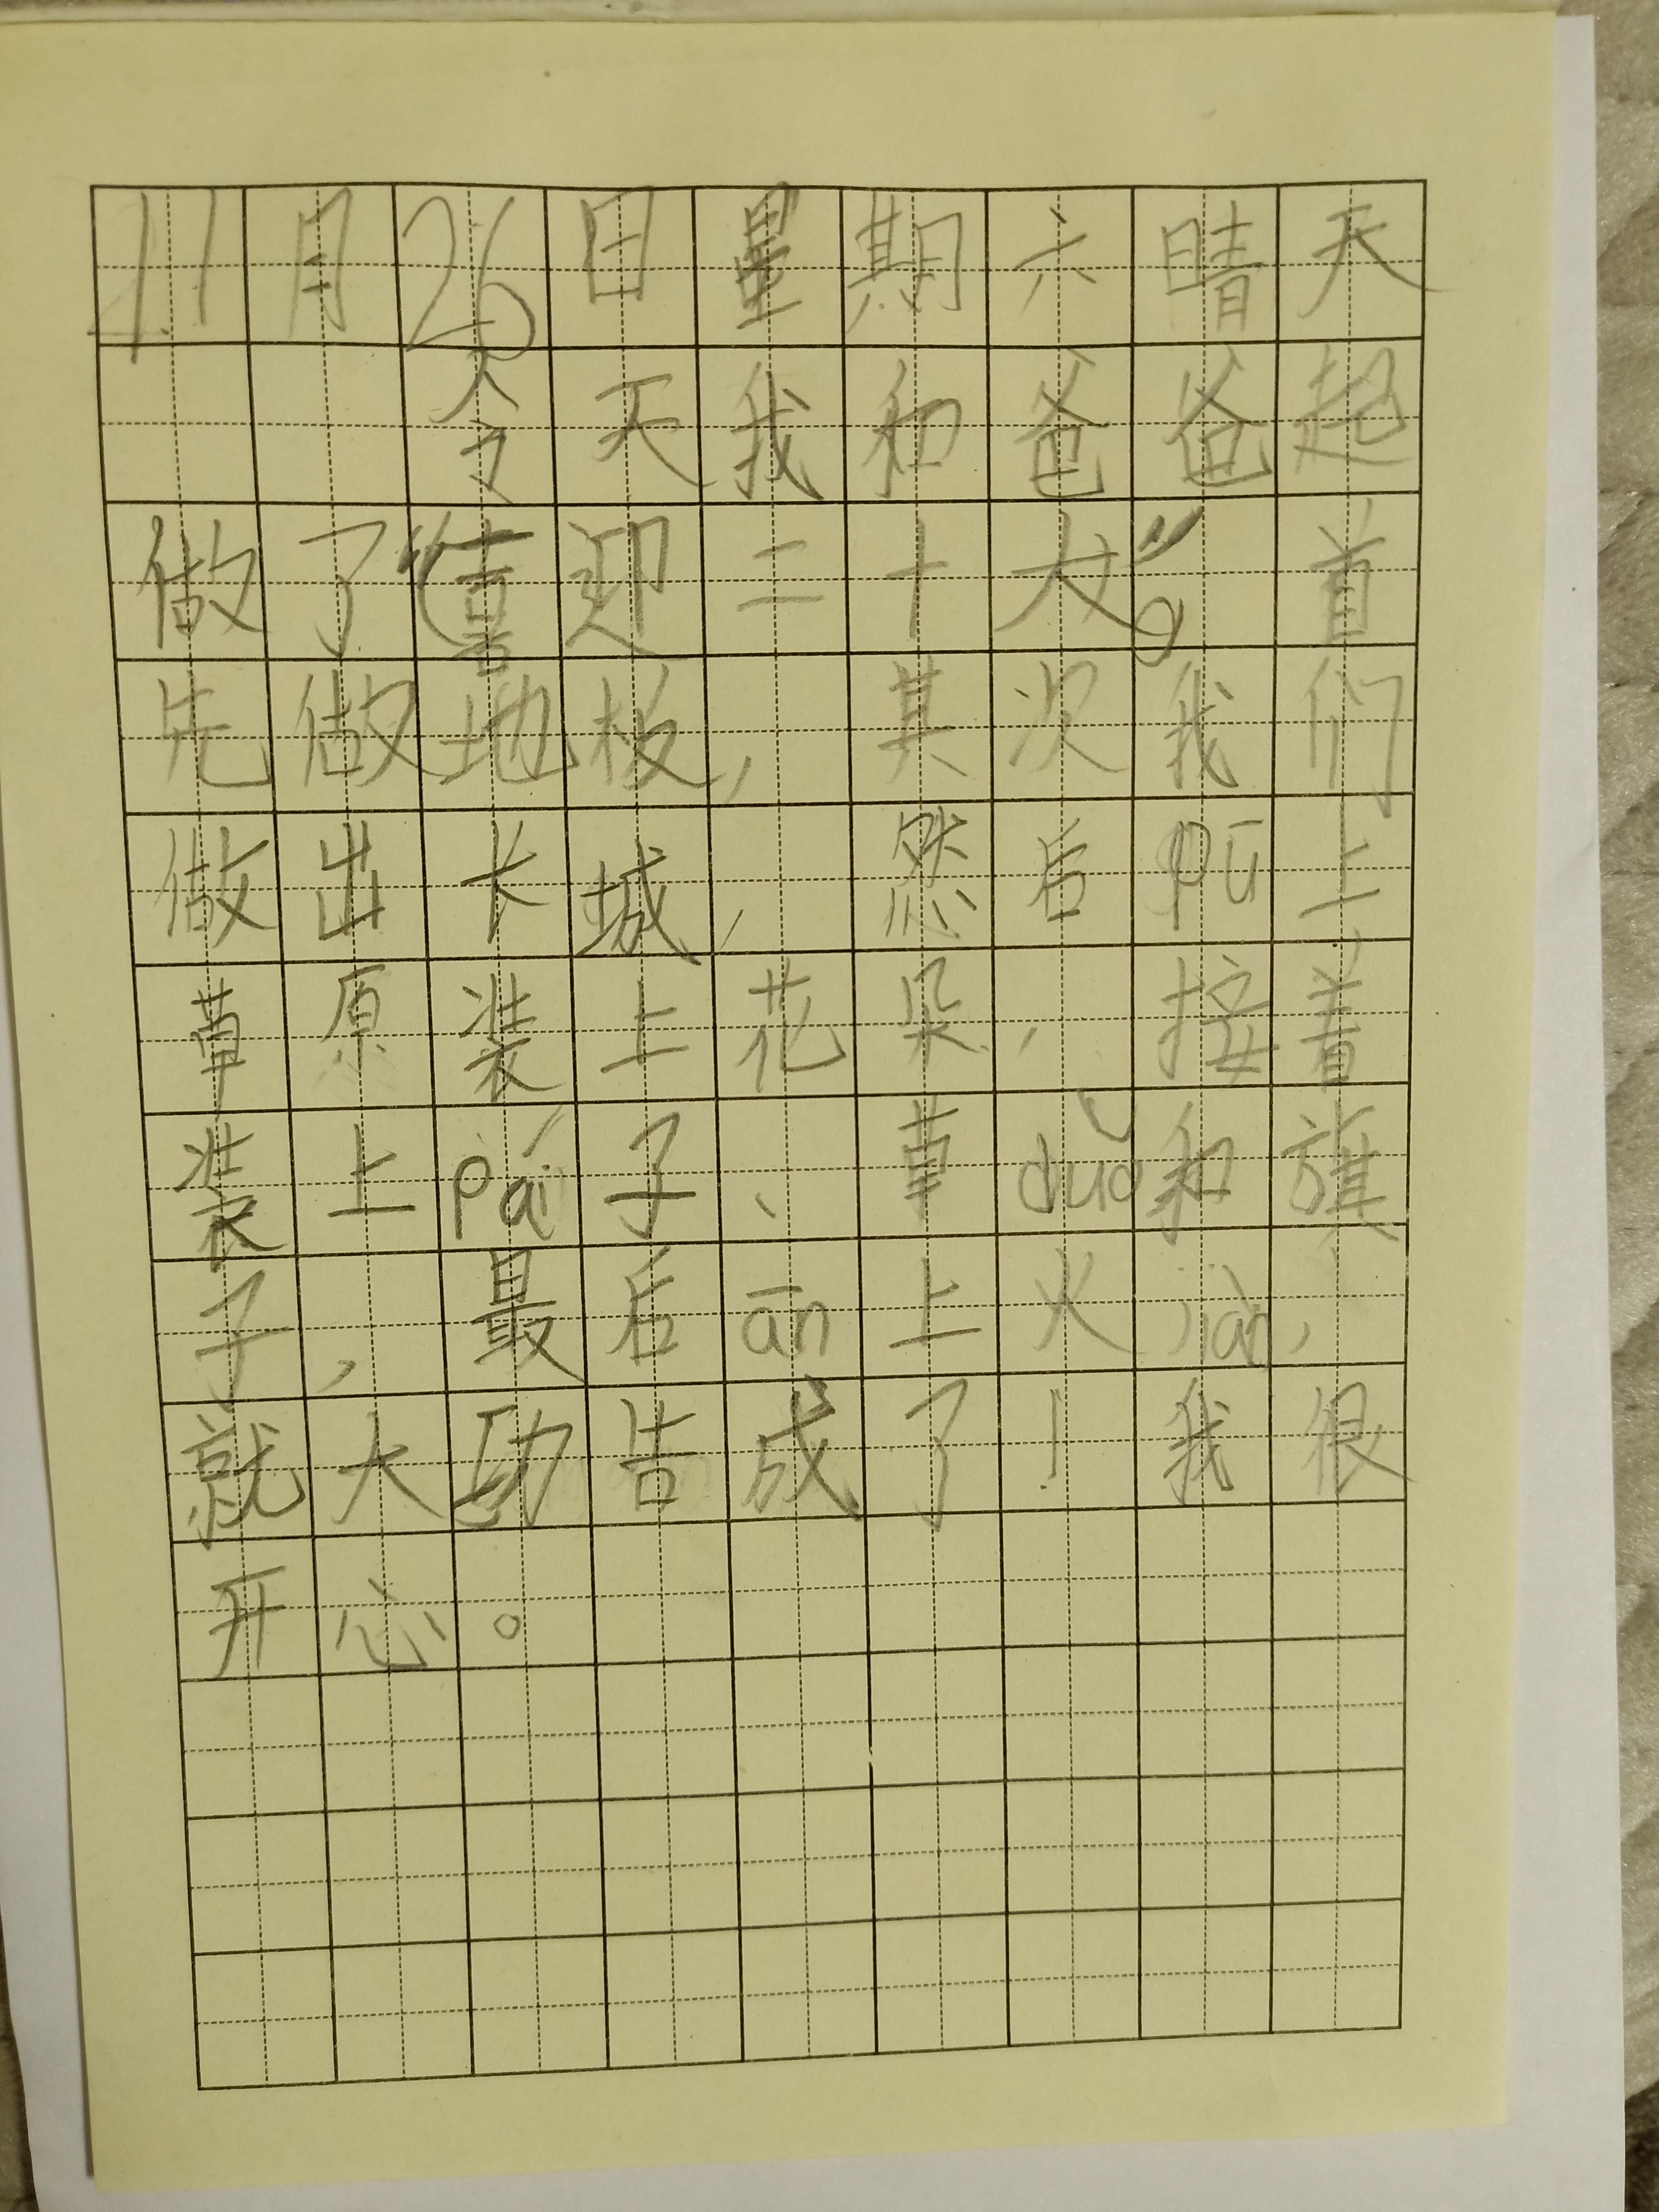 11月26日星期六晴天
今天我和爸爸起
做了“喜迎二十大”。首
先做地板，其次我们
做出长城，然后pū上
草原装上花朵，接着
装上pái子、草duǒ和旗
子，最后ān上火jiàn，
就大功告成了！我很
开心。